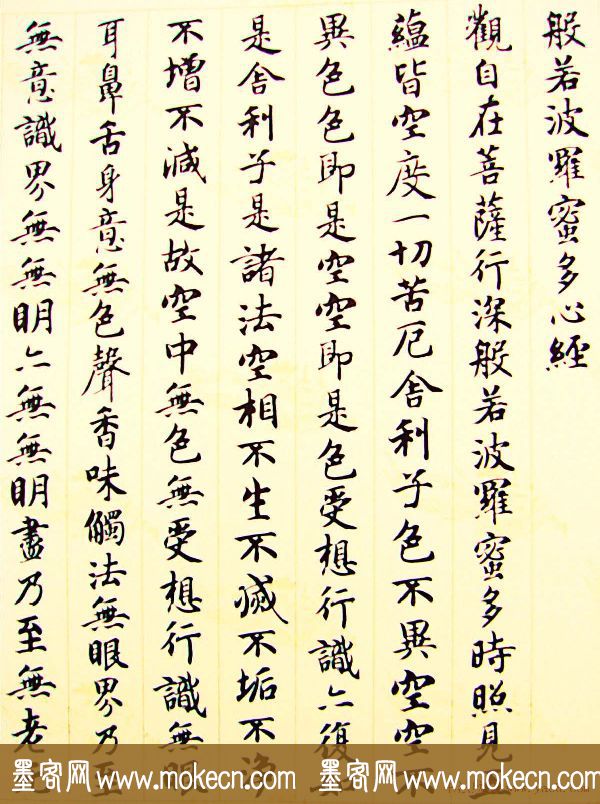 般若波羅蜜多心經
觀自在菩薩行深般若波羅蜜多時照見
蘊皆空度一切苦厄舍利子色不異空空不
異色色即是空空即是色受想行識亦復
是舍利子是諸法空相不生不滅不垢不淨
不增不減是故空中無色無受想行識無眼
耳鼻舌身意無色聲香味觸法無眼界乃至
無意識界無無明亦無無明盡乃至無老
墨客网 www.mokecn.com 墨客网 www.mokecn.com